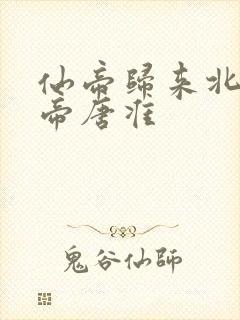 仙帝歸來北
帝唐准
鬼谷仙師